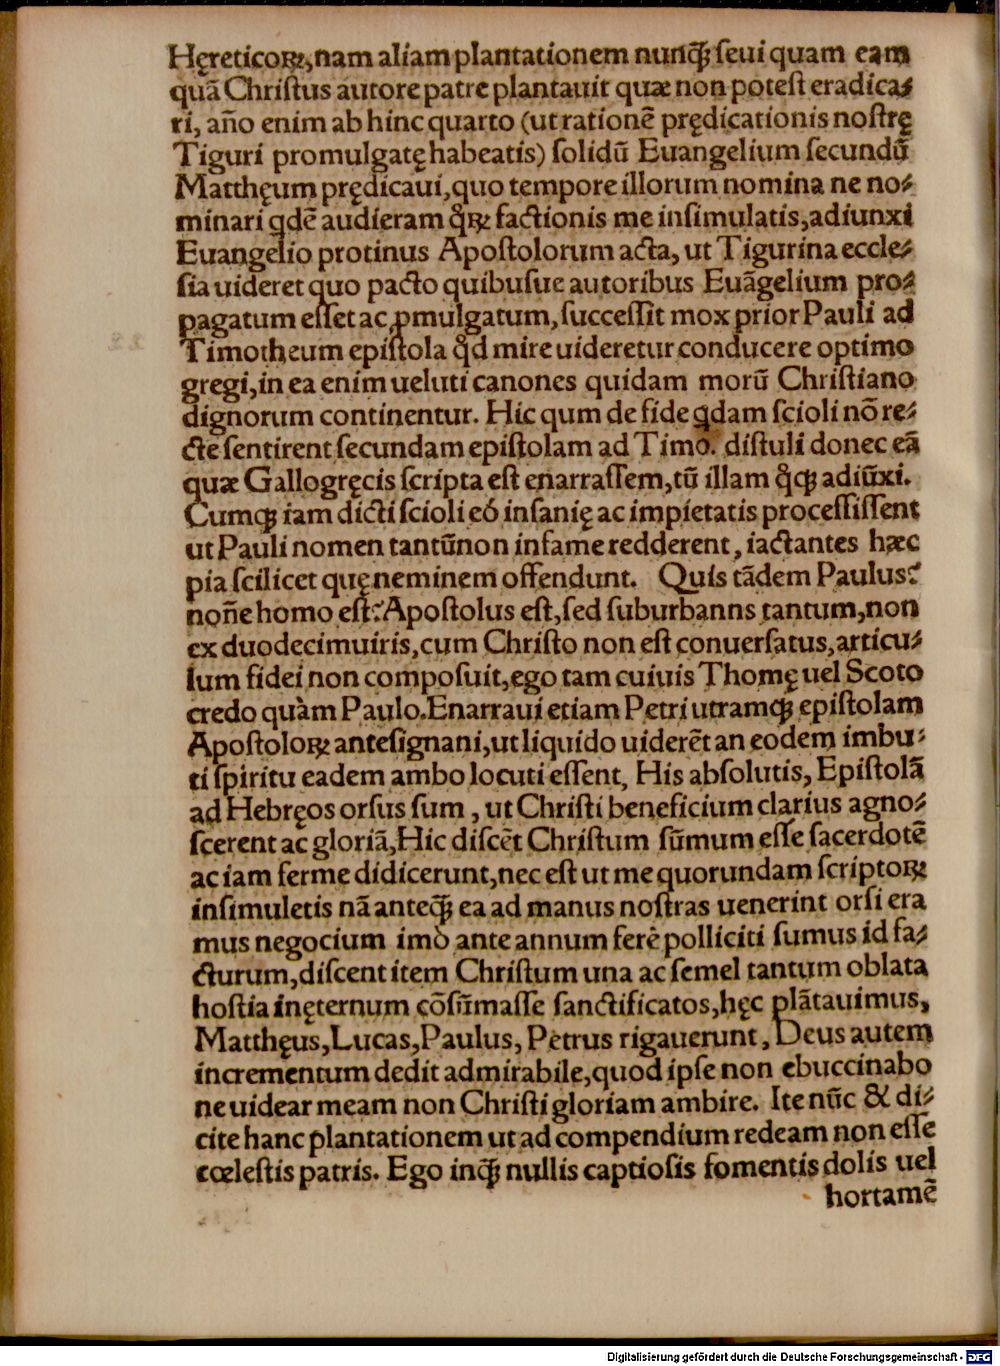 Hęreticoꝝ, nam aliam plantationem nunq̃ꝫ seui quam eam
quã Christus autore patre plantauit quæ non potest eradica-
ri, año enim ab hinc quarto (ut rationẽ prędicationis nostrę
Tiguri promulgatę habeatis) solidũ Euangelium secundũ
Matthęum prędicaui, quo tempore illorum nomina ne no-
minari qdẽ audieram qͦꝝ factionis me insimulatis, adiunxi
Euangelio protinus Apostolorum acta, ut Tigurina eccle-
sia uideret quo pacto quibusue autoribus Euãgelium pro-
pagatum esset ac ꝓmulgatum, successit mox prior Pauli ad
Timotheum epistola qd̓ mire uideretur conducere optimo
gregi, in ea enim ueluti canones quidam morũ Christiano
dignorum continentur. Hic qum de fide qdam scioli nõ re-
cte sentirent secundam epistolam ad Timo. distuli donec eã
quæ Gallogręcis scripta est enarrassem, tũ illam qͦqꝫ adiũxi.
Cumqꝫ iam dicti scioli eó insanię ac impietatis processissent
ut Pauli nomen tantũnon infame redderent, iactantes hæc
pia scilicet quę neminem offendunt. Quis tãdem Paulus?
noñe homo est? Apostolus est, sed suburbanns tantum, non
ex duodecimuiris, cum Christo non est conuersatus, articu-
lum fidei non composuit, ego tam cuiuis Thomę uel Scoto
credo quàm Paulo. Enarraui etiam Petri utramqꝫ epistolam
Apostoloꝝ antesignani, ut liquido uiderẽt an eodem imbu-
ti spiritu eadem ambo locuti essent, His absolutis, Epistolã
ad Hebręos orsus sum, ut Christi beneficium clarius agno-
scerent ac gloriã, Hic discẽt Christum sũmum esse sacerdotẽ
ac iam ferme didicerunt, nec est ut me quorundam scriptoꝝ
insimuletis nã anteq̃ꝫ ea ad manus nostras uenerint orsi era
mus negocium imò ante annum ferè polliciti sumus id fa-
cturum, discent item Christum una ac semel tantum oblata
hostia inęternum cõsũmasse sanctificatos, hęc plãtauimus,
Matthęus, Lucas, Paulus, Petrus rigauerunt, Deus autem
incrementum dedit admirabile, quod ipse non ebuccinabo
ne uidear meam non Christi gloriam ambire. Ite nũc & di-
cite hanc plantationem ut ad compendium redeam non esse
cœlestis patris. Ego inq̃ꝫ nullis captiosis fomentis dolis uel
hortamẽ
Digitalisierung gefördert durch die Deutsche Forschungsgemeinschaft - DFG